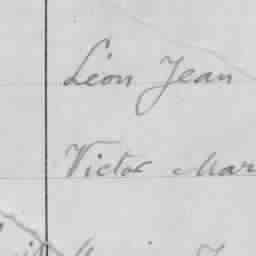 Léon Jean
Victor Mar